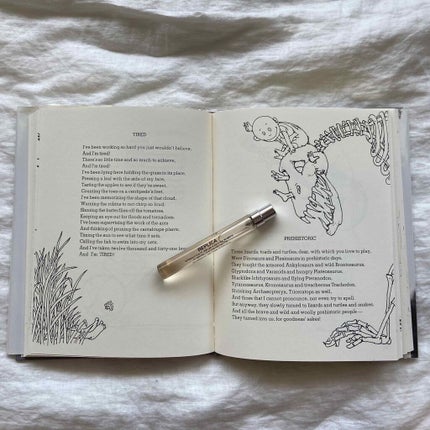 TIRED
I've been working so hard you just wouldn't believe,
And I'm tired!
There's so little time and so much to achieve,
And I'm tired!
I've been lying here holding the grass in its place,
Pressing a leaf with the side of my face,
Tasting the apples to see if they're sweet,
Counting the toes on a centipede's feet.
I've been memorizing the shape of that cloud,
Warning the robins to not chirp so loud,
Shooing the butterflies off the tomatoes,
Keeping an eye out for floods and tornadoes.
I've been supervising the work of the ants
And thinking of pruning the cantaloupe plants,
Timing the sun to see what time it sets,
Calling the fish to swim into my nets,
And I've taken twelve thousand and forty-one
And I'm TIRED!
REPLICA
PREHISTORIC
These lizards, toads and turtles, dear, with which you love to play,
Were Dinosaurs and Plesiosaurs in prehistoric days.
They fought the armored Ankylosaurs and wild Brontosaurus,
Glyptodons and Varanids and hungry Plateosaurus,
Shacklike Ichthyosaurs and flying Pteranodon,
Tyrannosaurus, Kronosaurus and treacherous Trachodon,
Hoisting Archaeopteryx, Triceratops as well,
And those that I cannot pronounce, nor even try to spell.
But anyway, they slowly turned to lizards and turtles and snakes.
And all the brave and wild and woolly prehistoric people—
They turned into us, for goodness' sakes!